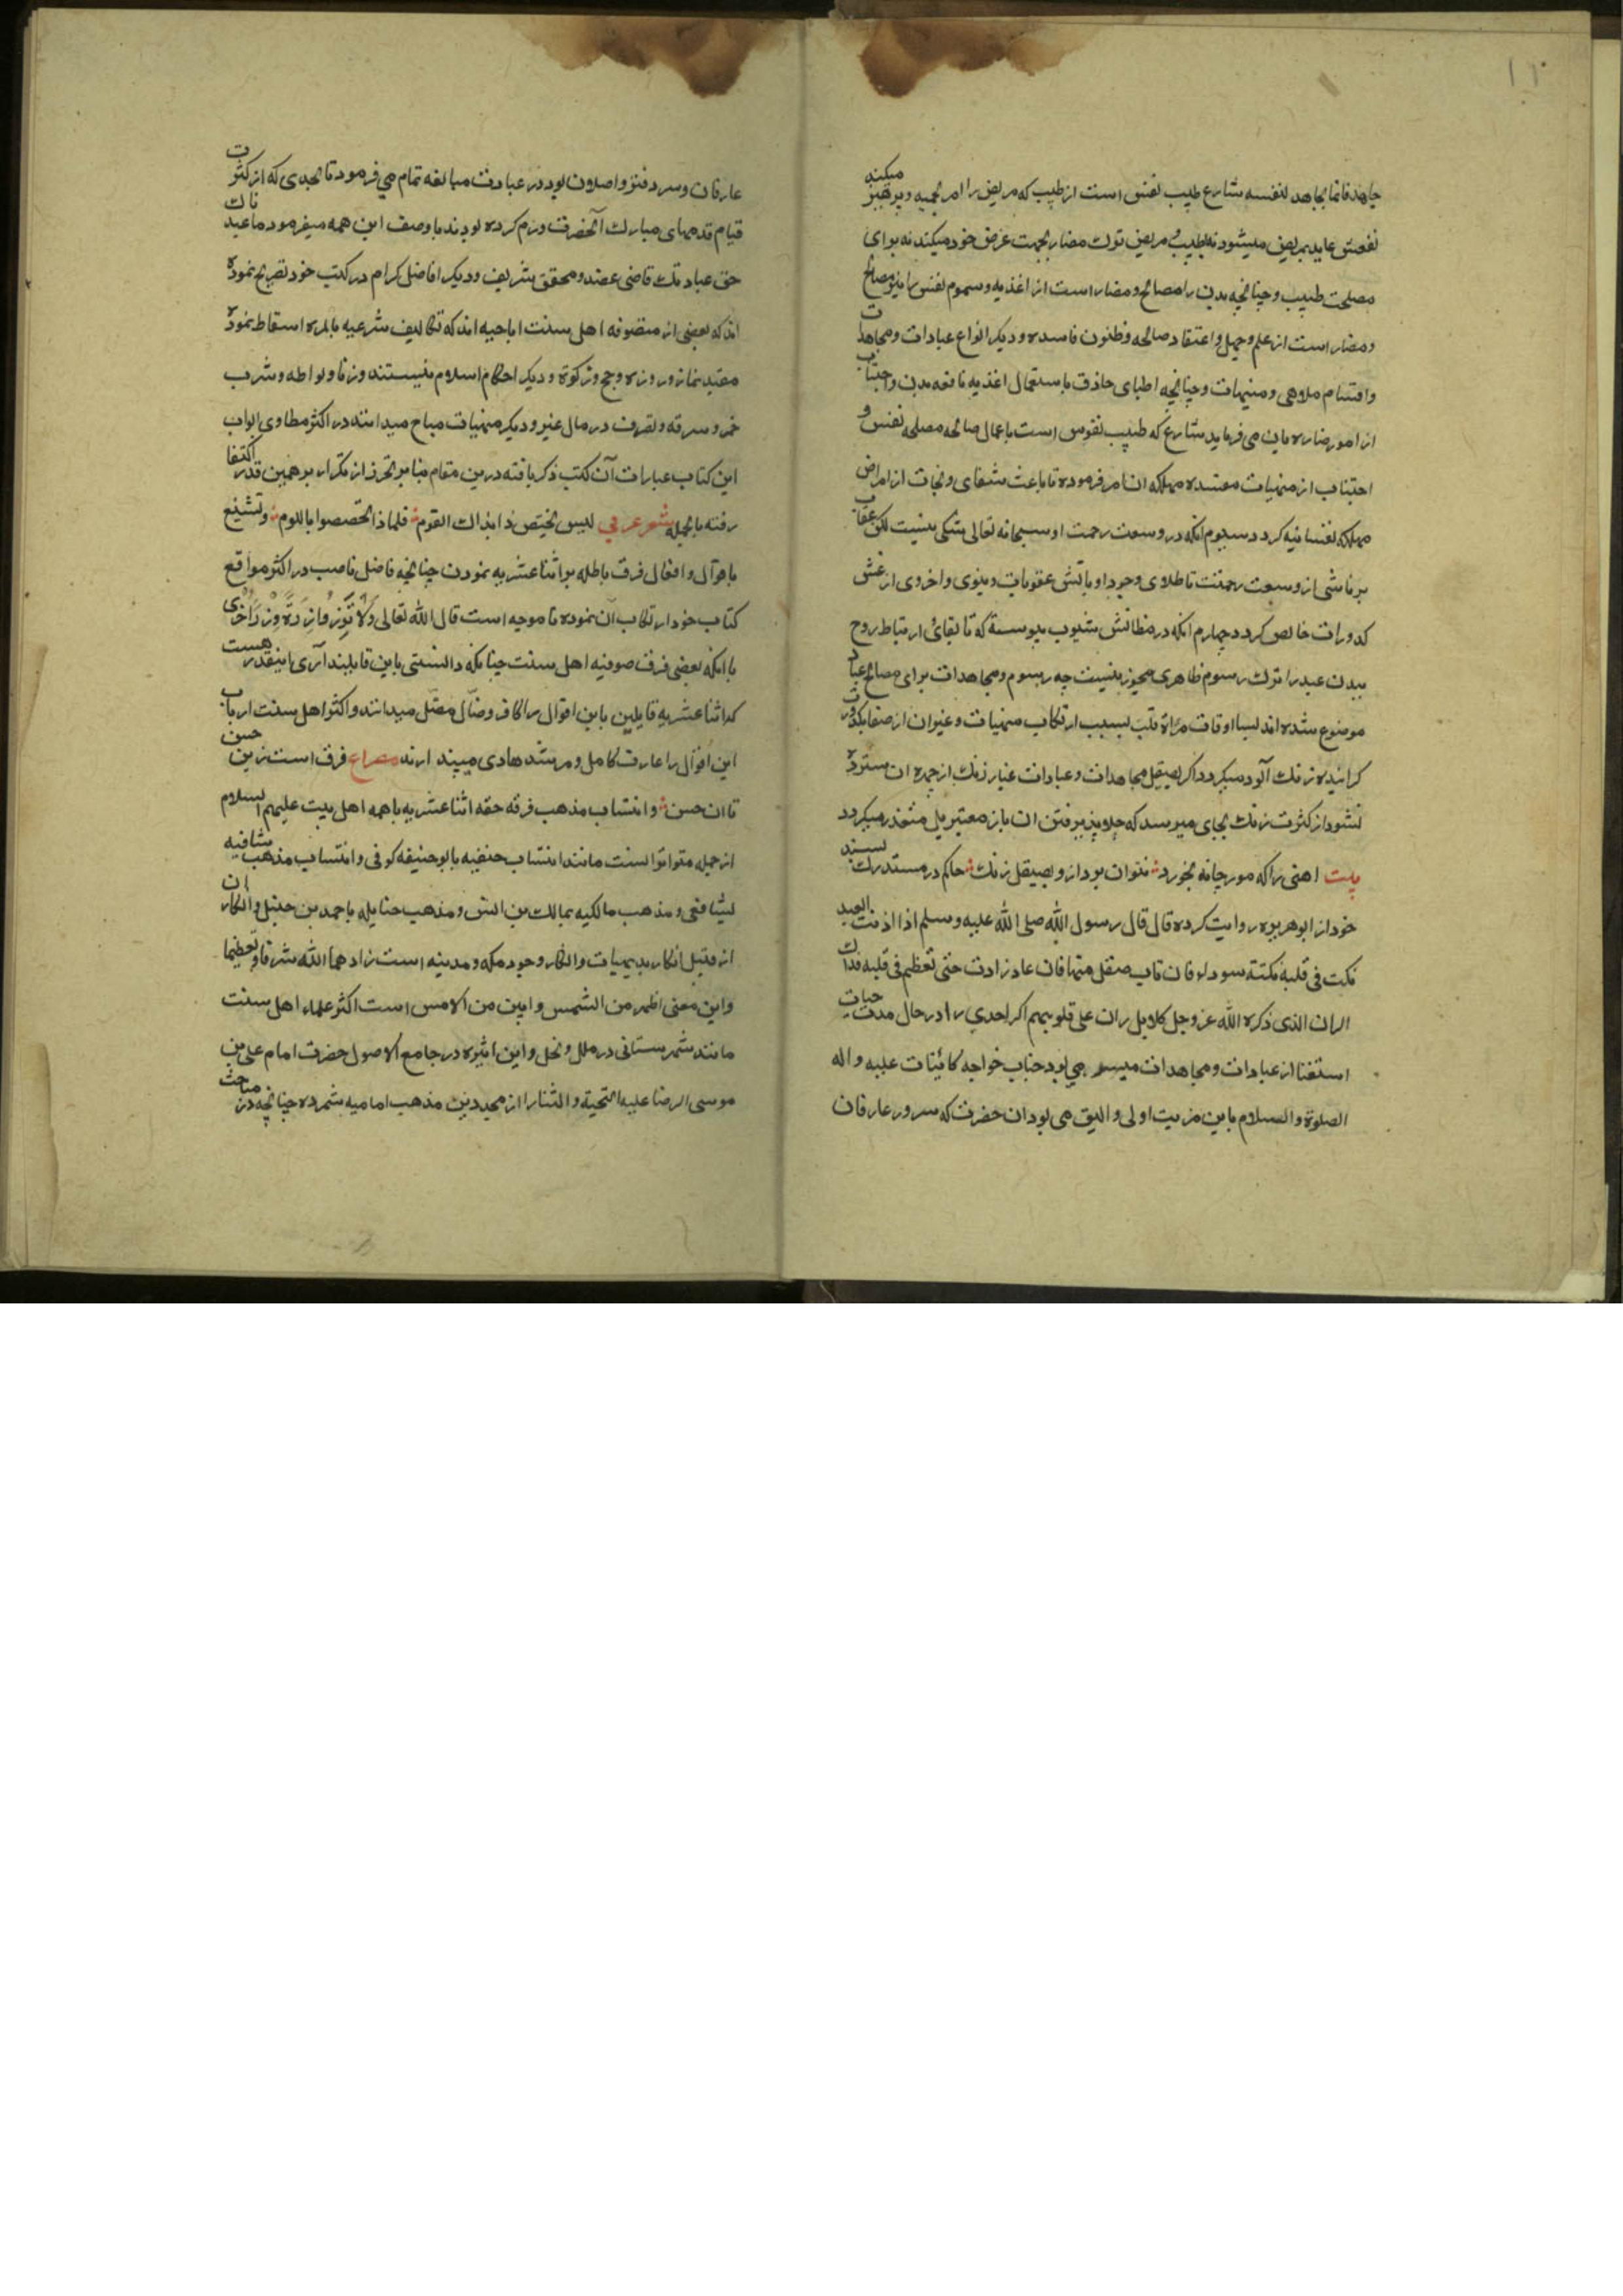 ۱۱
جاهد فانما یجاهد لنفسه شارع طبیب نفس است از طبیب که مریض را امر بحمیه و پرهیز میکند
نفعش عاید بمریض میشود نه بطبیب و مریض ترک مضار بجهت غرض خود میکند نه برای
مصلحت طبیب و چنانچه بدن را مصالح و مضار است از اغذیه و سموم نفس را نیز مصالح
و مضار است از علم و جهل و اعتقاد صالحه و ظنون فاسده و دیگر انواع عبادات و مجاهدات
و اقتسام ملاهی و منهیات و چنانچه اطبای حاذق باستعمال اغذیه نافعه بدن و اجتناب
از امور ضاره باین می فرماید شارع که طبیب نفوس است باعمال صالحه مصلحه نفس و
اجتناب از منهیات مفسده مهلکه آن امر فرموده تا باعث شفای و نجات از امراض
مهلکه نفسانیه گردد سیوم آنکه در وسعت رحمت او سبحانه تعالی شکی نیست لکن عقاب
بر ناشی از وسعت رحمتست تا طلای وجود او بآتش عقوبات دنیوی و اخروی از غش
کدورات خالص گردد چهارم آنکه در مظانش مشوب پیوسته که تا بقای ارتباط روح
ببدن عبد را ترک رسوم ظاهری مجوز نیست چه رسوم و مجاهدات برای مصالح عباد
موضوع شده اند بسا اوقات مرآة قلب بسبب ارتکاب منهیات و غیر آن از صفا بکدورت
گرائیده زنگ آلود میگردد اگر بصیقل مجاهدات و عبادات غبار زنگ از چهره آن سترده
نشود از کثرت زنگ بجای میرسد که جلاپذیرفتن آن باز متعسر بل متعذر میگردد
بیت آهنی را که مورچانه بخورد نتوان برد ازو بصیقل زنگ حاکم در مستدرک بسند
خود از ابوهریره روایت کرده قال قال رسول الله صلی الله علیه وسلم اذا اذنب العبد
نکت فی قلبه نکتة سوداء فان تاب صقل منها فان عاد زادت حتی تعظم فی قلبه فذلک
الران الذی ذکره الله عز وجل کلا بل ران علی قلوبهم اگر احدی را در حال مدت حیات
استغنا از عبادات و مجاهدات میسر می بود جناب خواجه کائنات علیه و اله
الصلوة و السلام باین مزیت اولی و الیق می بود آن حضرت که سرور عارفان
عارفان و سر دفتر واصلان بود در عبادت مبالغه تمام می فرمود تا بحدی که از کثرت
قیام قدمهای مبارک آنحضرت ورم کرده بودند باوصف این همه میفرمود ما عبدناک
حق عبادتک قاضی عضد و محقق شریف و دیگر افاضل کرام در کتب خود تصریح نموده
اند که بعضی از متصوفه اهل سنت اباحیه اند که تکالیف شرعیه بالمره اسقاط نموده
مقید نماز و روزه و حج و زکوة و دیگر احکام اسلام نیستند و زنا و لواطه و شرب
خمر و سرقه و تصرف در مال غیر و دیگر منهیات مباح میدانند در اکثر مطاوی ابواب
این کتاب عبارات آن کتب ذکر یافته درین مقام بنا بر تحرز از تکرار بر همین قدر اکتفا
رفته بالجمله شعر عربی لیس یختص ذا بذاک القوم فلماذا تخصصوا باللوم و تشنیع
باقوال و افعال فرق باطله بر اثنا عشریه نمودن چنانچه فاضل ناصب در اکثر مواقع
کتاب خود ارتکاب آن نموده ناموجه است قال الله تعالی ولا تزر وازرة وزر اخری
با آنکه بعضی فرق صوفیه اهل سنت چنانکه دانستی باین قایلند آری اینقدر هست
که اثنا عشریه قایلین باین اقوال را کافر و ضال مضل میدانند و اکثر اهل سنت ارباب
این اقوال را عارف کامل و مرشد هادی می پندارند مصراع فرق است زین حسن
تا آن حسن و انتساب مذهب فرقه حقه اثنا عشریه باهمه اهل بیت علیهم السلام
از جمله متواتر است مانند انتساب حنفیه بابو حنیفه کوفی و انتساب مذهب شافعیه
بشافعی و مذهب مالکیه بمالک بن انس و مذهب حنابله باحمد بن حنبل و انکار آن
از قبیل انکار بدیهیات و انکار وجود مکه و مدینه است زادهما الله شرفا و تعظیما
و این معنی اظهر من الشمس و ابین من الامس است اکثر علماء اهل سنت
مانند شهرستانی در ملل و نحل و ابن اثیر در جامع الاصول حضرت امام علی بن
موسی الرضا علیه التحیة و الثنا را از مجددین مذهب امامیه شمرده چنانچه در مباحث